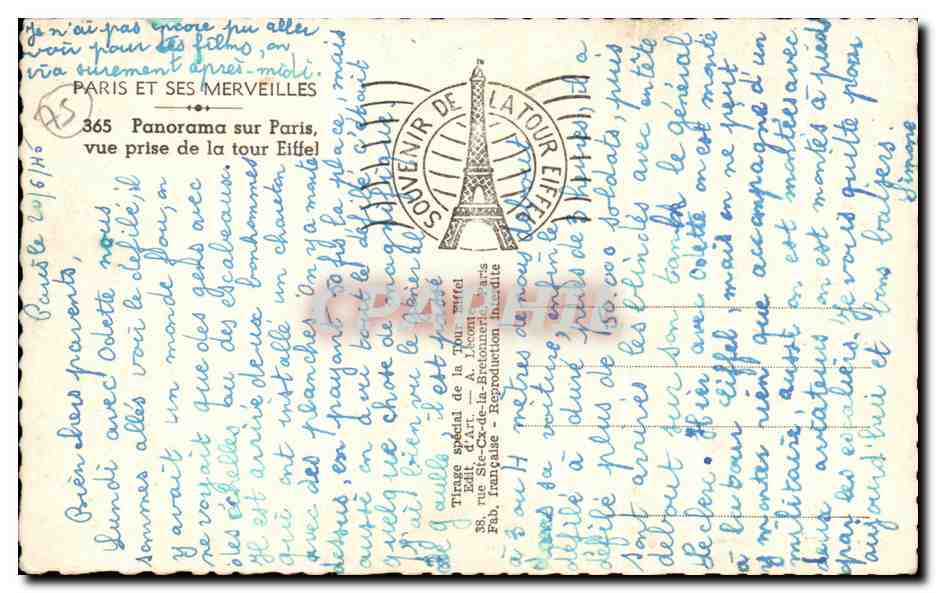 Je n'ai pas encore pu aller
voir pour les films, on
ira surement après-midi.
PARIS ET SES MERVEILLES
365 Panorama sur Paris,
vue prise de la tour Eiffel
75
SOUVENIR DE LA TOUR EIFFEL
Tirage spécial de la Tour Eiffel
Edit. d'Art. — A. Leconte
38, rue Ste-Cx-de-la-Bretonnerie, Paris
Fab. française - Reproduction interdite
CPAPHIL
Paris le 20/6/
Bien chers parents,
Lundi avec Odette nous
sommes allés voir le défilé, il
y avait un monde fou, on
ne voyait que des gens avec
des échelles ou des escabeaux.
Il est arrivé deux bonshommes
qui ont installé un chantier
avec des planches. On y a monté
dessus, en payant 50 frs la place, mais
aussi on a vu tout le défilé, c'était
quelque chose de magnifique
j'ai bien vu le général
de Gaulle, il est passé
à 3 ou 4 mètres de nous
dans sa voiture, enfin le
défilé à duré plus de
défilé plus de 50.000 soldats, puis
sont arrivés les blindés avec en tête
debout sur son tank le général
Leclerc. Hier avec Odette on est monté
à la tour Eiffel, mais on ne peut
y monter rien que accompagné d'un
militaire, aussi on est montés avec
deux aviateurs on est montés à pied
par les escaliers. Je vous quitte pour
aujourd'hui et bons baisers
Simone